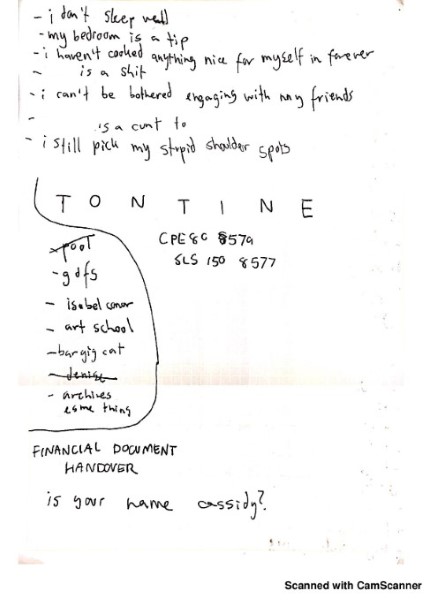 - i don't sleep well
- my bedroom is a tip
- i haven't cooked anything nice for myself in forever
- is a shit
- i can't be bothered engaging with my friends
-
is a cunt to
- i still pick my stupid shoulder spots
T O N T I N E
- pool
- gdfs
- isobel conor
- art school
- bargig cat
- denise
- archives
esme thing
CPE80 8579
SLS 150 8577
FINANCIAL DOCUMENT
HANDOVER
is your name cassidy?
Scanned with CamScanner